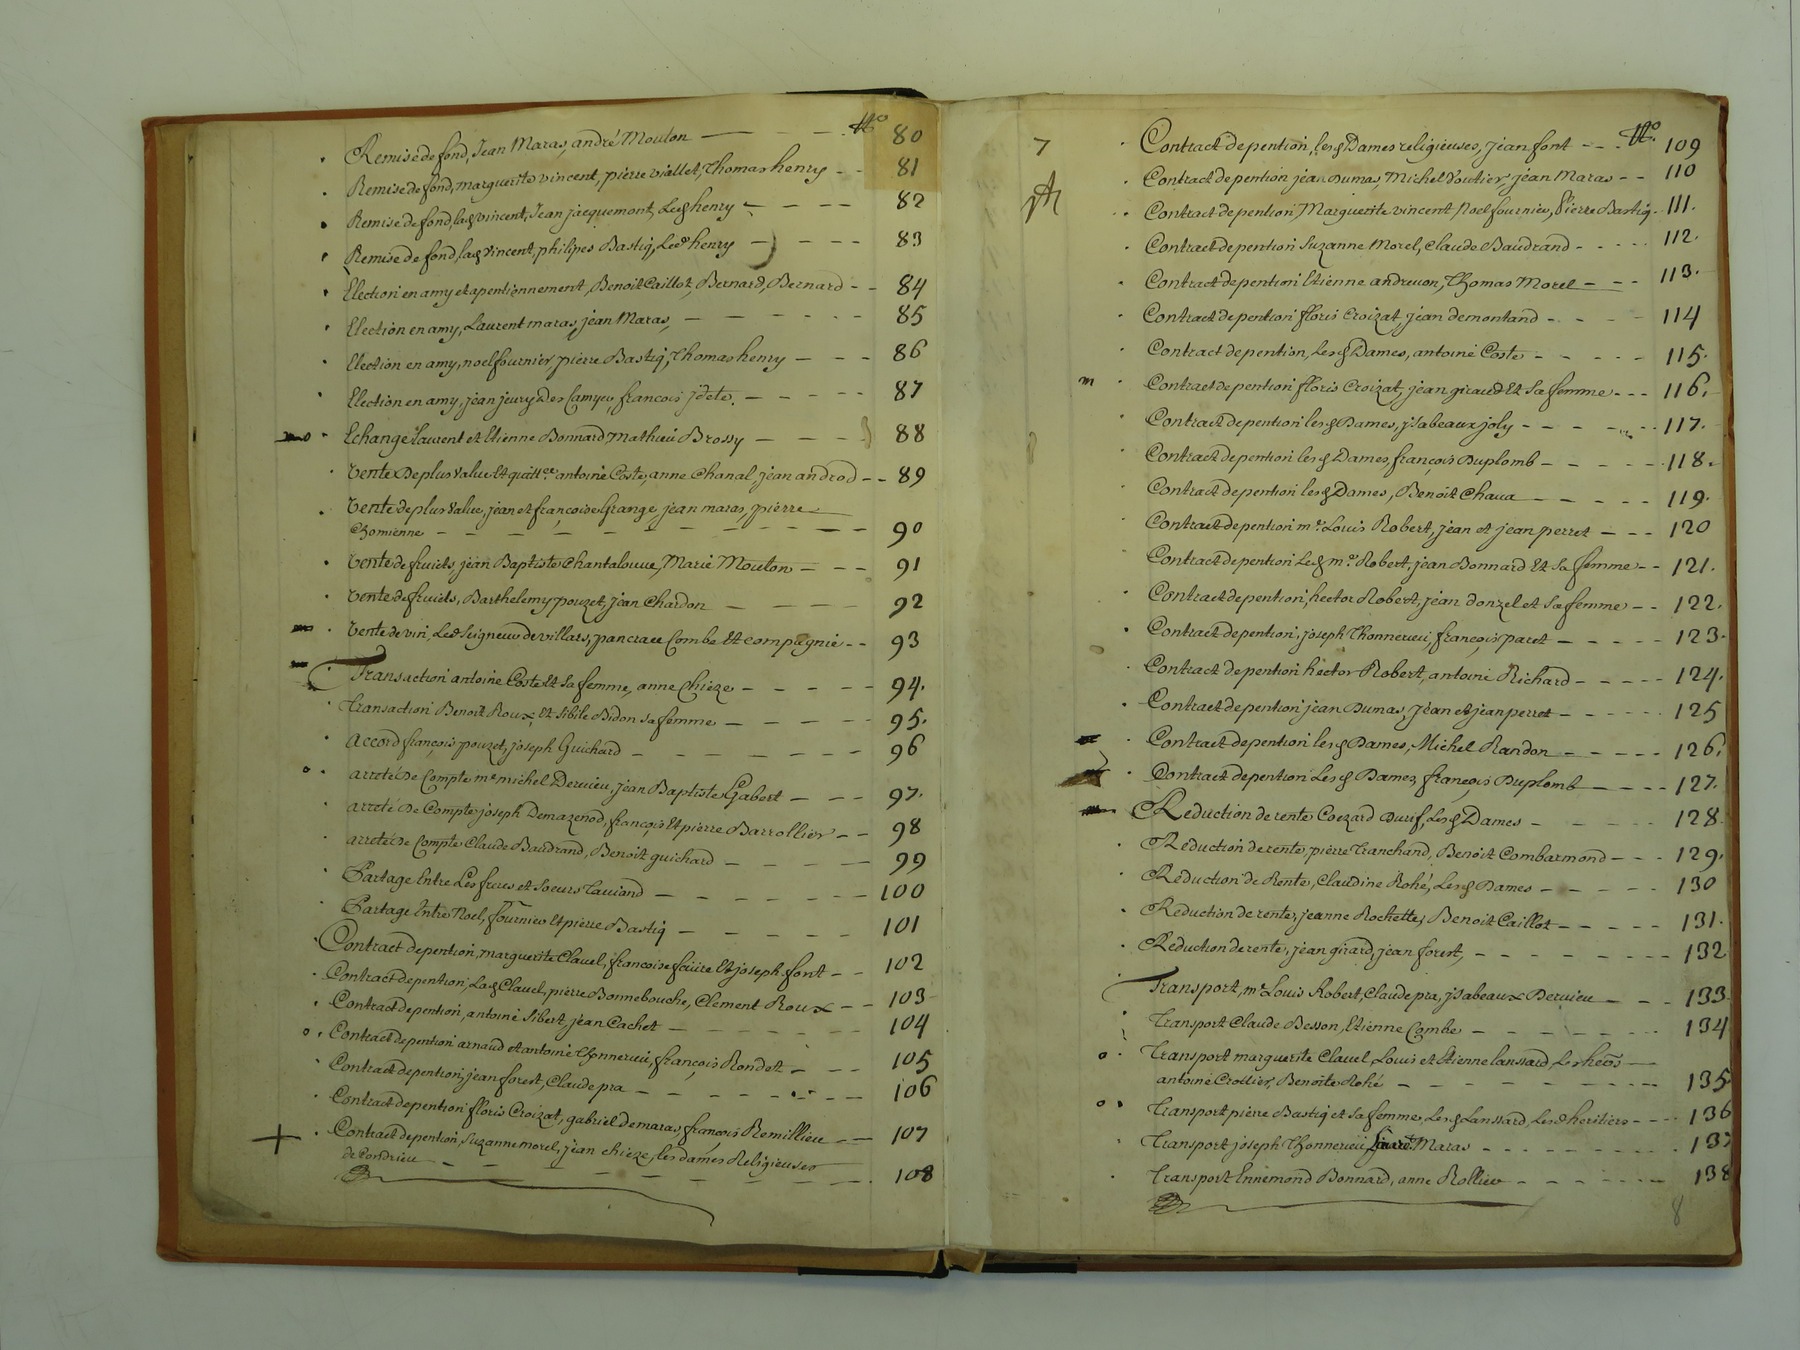 Remise de fond, Jean Maras, andré Moulon N° 80
Remise de fond, marguerite vincent, pierre viallet, Thomas henry 81
Remise de fond, lad vincent, Jean jacquemont, Led henry 82
Remise de fond, lad vincent, philipes Bastiq, Led henry 83
Election en amy et apentionnement, Benoit Caillot, Bernard, Bernard 84
Election en amy, Laurent maras, jean Maras, 85
Election en amy, noel fournier, pierre Bastiq, Thomas henry 86
Election en amy, jean jeury Des Camyeu, francois 87
Echange Laurent et Etienne Bonnard Mathieu Brossy 88
Vente De plus value Et antoine Coste, anne Chanal, jean androd 89
Vente de plus value, jean et francoise Grange, jean maras, pierre
Chomienne 90
Vente de fruicts, jean Baptiste Chantalouve, Marie Moulon 91
Vente de fruicts, Barthelemy pouzet, Jean Chardon 92
Vente de vin, Led Seigneur de villars, pancrace Combe Et compagnie 93
Transaction antoine Coste Et sa femme, anne Chieze 94.
Transaction Benoit Roux, Et Sibile Bidon sa femme 95.
Accord françois pouzet, joseph Guichard 96
arreté De Compte me michel Dervieu, jean Baptiste Gabert 97.
arreté De Compte joseph Demazenod, françois Et pierre Barrollier 98
arreté De Compte Claude Baudrand, Benoit guichard 99
Partage Entre Les freres et Soeurs Tauiand 100
Partage Entre Noel, fournier Et pierre Bastiq 101
Contract de pention, marguerite Clavel, francoise Et joseph font 102
Contract de pention, Lad Clavel, pierre Bonnebouche, Clement Roux 103
Contract de pention, antoine Sibert, jean Cachet 104
Contract de pention arnaud et antoine Thonnerieu, françois Rondet 105
Contract de pention, jean forest, Claude pra 106
Contract de pention floris Croizat, gabriel demaras, françois Remillieu 107
Contract de pention, Suzanne morel, jean chieze, les dames Religieuses
de Condrieu 108
7 Contract de pention, lesd Dames religieuses, jean font N° 109
Contract de pention jean Dumas, Michel Voutier, jean Maras 110
Contract de pention Marguerite vincent, Noel fournier, Pierre Bastiq 111.
Contract de pention Suzanne Morel, Claude Baudrand 112.
Contract de pention Etienne andrevon, Thomas Morel 113.
Contract de pention floris Croizat, jean demontand 114
Contract de pention, Lesd Dames, antoine Coste 115.
m Contract de pention floris Croizat, jean giraud Et Sa femme 116.
Contract de pention lesd Dames, jsabeaux joly 117.
Contract de pention lesd Dames, françois Duplomb 118.
Contract de pention lesd Dames, Benoit Chava 119.
Contract de pention me Louis Robert, jean et jean perret 120
Contract de pention Led me Robert, jean Bonnard Et Sa femme 121.
Contract de pention, hector Robert, jean donzel et Sa femme 122.
Contract de pention, joseph Thonnerieu, françois paret 123.
Contract de pention hector Robert, antoine Richard 124.
Contract de pention jean Dumas, Jean et jean perret 125
Contract de pention lesd Dames, Michel Randon 126.
Contract de pention Lesd Dames, françois Duplomb 127.
Reduction de rente Coezard Durif, Lesd Dames 128.
Reduction de rente, pierre Tranchand, Benoit Combarmond 129.
Reduction de Rente, Claudine Rohé, Lesd Dames 130
Reduction de rente, jeanne Rochette, Benoit Caillot 131.
Reduction de rente, jean girard, jean forest, 132
Transport, me Louis Robert, Claude pra, jsabeaux Dervieu 133.
Transport Claude Besson, Etienne Combe 134
Transport marguerite Clavel, Louis et Etienne lanssard, Les heos
antoine Crottier, Benoite Rohé 135
Transport pierre Bastiq et sa femme, Lesd Lanssard, Lesd heritiers 136
Transport joseph Thonnerieu, Maras 137
Transport Ennemond Bonnard, anne Rollier 138
8